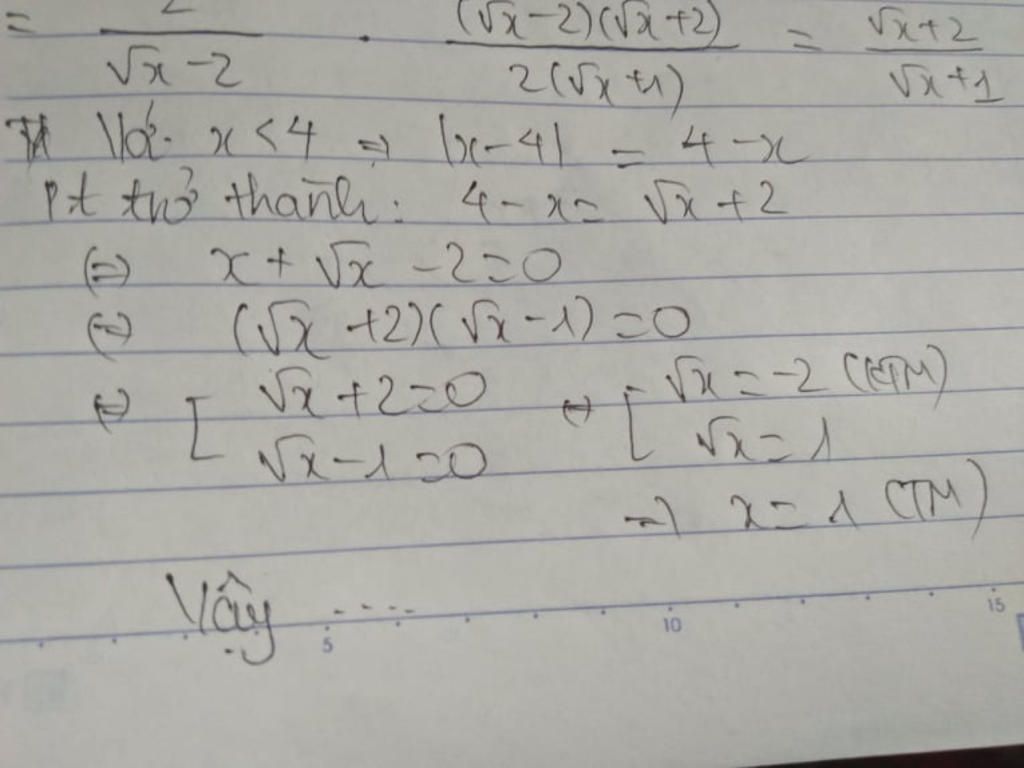 = 2/(√x - 2) . (√x - 2)(√x + 2)/2(√x + 1) = (√x + 2)/(√x + 1)
Với x < 4 => |x - 4| = 4 - x
Pt trở thành: 4 - x = √x + 2
(=) x + √x - 2 = 0
(=) (√x + 2)(√x - 1) = 0
(=) [ √x + 2 = 0 (=) [ √x = -2 (KTM)
√x - 1 = 0 √x = 1
=> x = 1 (TM)
Vậy ....
5 10 15